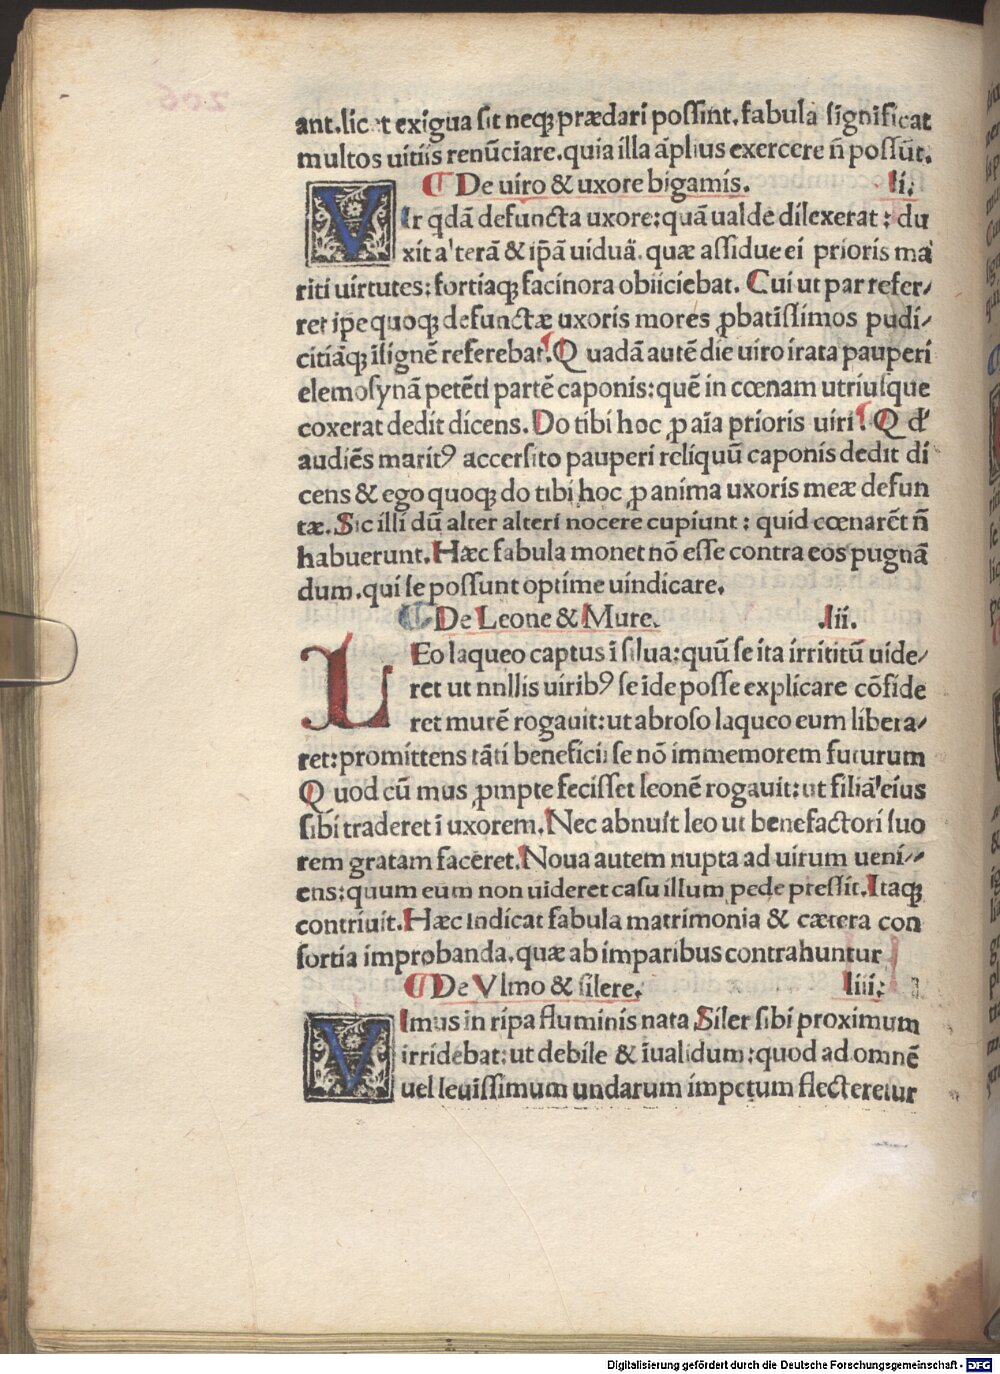 ant.licet exigua sit neqꝫ prædari possint.fabula significat
multos uitiis renūciare.quia illa āplius exercere n̄ possūt.
De uiro & uxore bigamis. li.
VIr qdā defuncta uxore:quā ualde dilexerat: du
xit a'terā & ip̄ā uiduā.quæ assidue ei prioris ma
riti uirtutes:fortiaqꝫ facinora obiiciebat. Cui ut par refer/
ret ipe quoqꝫ defunctæ uxoris mores ꝓbatissimos pudi/
citiāqꝫ īsignē referebat. Q uadā autē die uiro irata pauperi
elemosynā petēti partē caponis:quē in cœnam utriusque
coxerat dedit dicens. Do tibi hoc ꝓ aīa prioris uiri. Q d'
audiēs maritꝰ accersito pauperi reliquū caponis dedit di
cens & ego quoqꝫ do tibi hoc ꝓ anima uxoris meæ defun
tæ. Sic illi dū alter alteri nocere cupiunt: quid cœnarēt n̄
habuerunt. Hæc fabula monet nō esse contra eos pugnā
dum.qui se possunt optime uindicare.
De Leone & Mure. lii.
LEo laqueo captus ī silua:quū se ita irrititū uide/
ret ut nnllis uiribꝰ se īde posse explicare cōfide
ret murē rogauit:ut abroso laqueo eum libera/
ret:promittens tāti beneficii se nō immemorem futurum
Q uod cū mus ꝓmpte fecisset leonē rogauit:ut filiā eius
sibi traderet ī uxorem. Nec abnuit leo ut benefactori suo
rem gratam faceret. Noua autem nupta ad uirum ueni/
ens:quum eum non uideret casu illum pede pressit. Itaqꝫ
contriuit. Hæc indicat fabula matrimonia & cætera con
sortia improbanda.quæ ab imparibus contrahuntur
De Vlmo & silere. liii.
Vlmus in ripa fluminis nata Siler sibi proximum
irridebat:ut debile & īualidum:quod ad omnē
uel leuissimum undarum impetum flecteretur
Digitalisierung gefördert durch die Deutsche Forschungsgemeinschaft - DFG